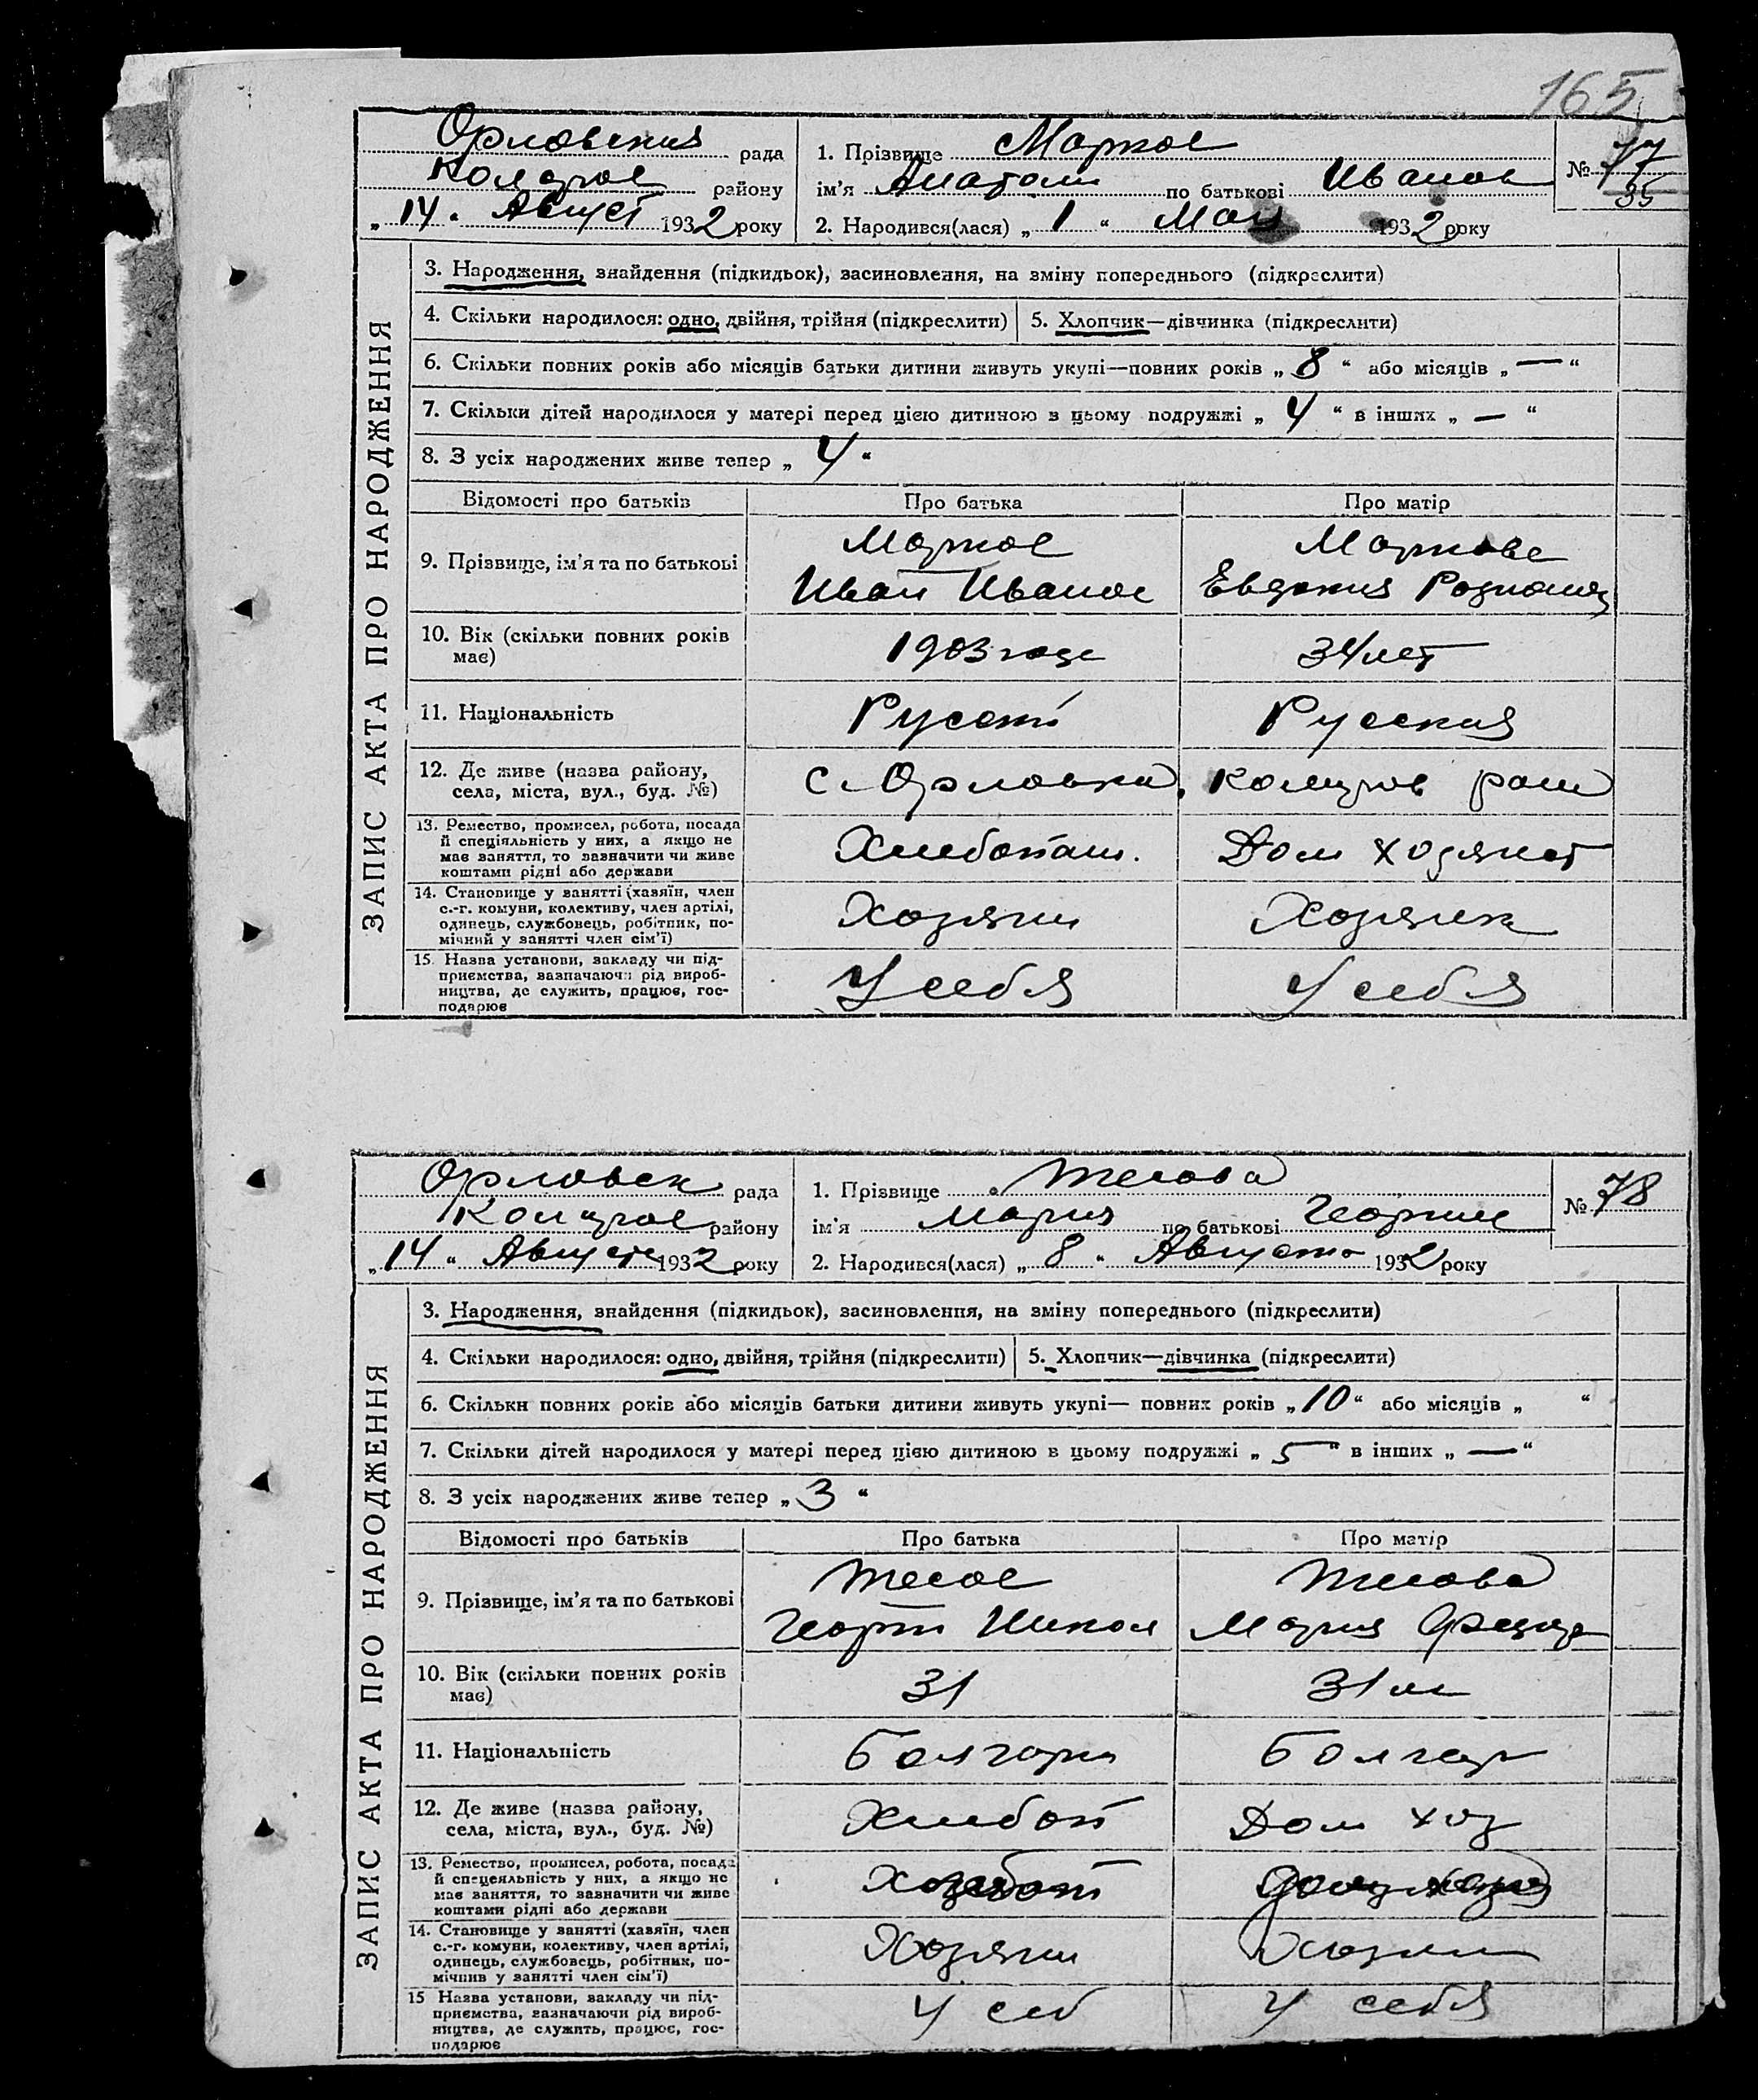 165
Орловския рада
Коларов району
„ 14 “ Август 1932 року
1. Прізвище Марков
ім'я Анатоли по батькові Иванов
2. Народився(лася) „ 1 “ Мая 1932 року
№ 77
35
ЗАПИС АКТА ПРО НАРОДЖЕННЯ
3. Народження, знайдення (підкидьок), засиновлення, на зміну попереднього (підкреслити)
4. Скільки народилося: одно, двійня, трійня (підкреслити) 5. Хлопчик—дівчинка (підкреслити)
6. Скільки повних років або місяців батьки дитини живуть укупі—повних років „ 8 “ або місяців „ — “
7. Скільки дітей народилося у матері перед цією дитиною в цьому подружжі „ 4 “ в інших „ — “
8. З усіх народжених живе тепер „ 4 “
Відомості про батьків Про батька Про матір
9. Прізвище, ім'я та по батькові
Марков
Иван Иванов
Маркова
Евдокия
10. Вік (скільки повних років
має)
1903 года
34 лет
11. Національність
Руский
Русския
12. Де живе (назва району,
села, міста, вул., буд. №)
с. Орловка, Коларов район
13. Ремество, промисел, робота, посада
й спеціяльність у них, а якщо не
має заняття, то зазначити чи живе
коштами рідні або держави
Хлебопаш.
Дом хозяист
14. Становище у занятті (хазяїн, член
с.-г. комуни, колективу, член артілі,
одинець, службовець, робітник, по-
мічний у занятті член сім'ї)
Хозяин
Хозяик
15. Назва установи, закладу чи під-
приємства, зазначаючи рід вироб-
ництва, де служить, працює, гос-
подарює
У себя
У себя
Орловск рада
Коларов району
„ 14 “ Августа 1932 року
1. Прізвище Тегова
ім'я Мария по батькові Георгие
2. Народився(лася) „ 8 “ Августа 1932 року
№ 78
ЗАПИС АКТА ПРО НАРОДЖЕННЯ
3. Народження, знайдення (підкидьок), засиновлення, на зміну попереднього (підкреслити)
4. Скільки народилося: одно, двійня, трійня (підкреслити) 5. Хлопчик—дівчинка (підкреслити)
6. Скільки повних років або місяців батьки дитини живуть укупі— повних років „ 10 “ або місяців „ “
7. Скільки дітей народилося у матері перед цією дитиною в цьому подружжі „ 5 “ в інших „ — “
8. З усіх народжених живе тепер „ 3 “
Відомості про батьків Про батька Про матір
9. Прізвище, ім'я та по батькові
Георги Никол
Мария
10. Вік (скільки повних років
має)
31
31 л
11. Національність
Болгарин
Болгар
12. Де живе (назва району,
села, міста, вул., буд. №)
Хлебоп
Дом хоз
13. Ремество, промисел, робота, посада
й спецеяльність у них, а якщо не
має заняття, то зазначити чи живе
коштами рідні або держави
14. Становище у занятті (хазяїн, член
с.-г. комуни, колективу, член артілі,
одинець, службовець, робітник, по-
мічнив у занятті член сім'ї)
Хозяин
Хозяин
15 Назва установи, закладу чи під-
приємства, зазначаючи рід вироб-
ництва, де служить, працює, гос-
подарює
У себ
У себя